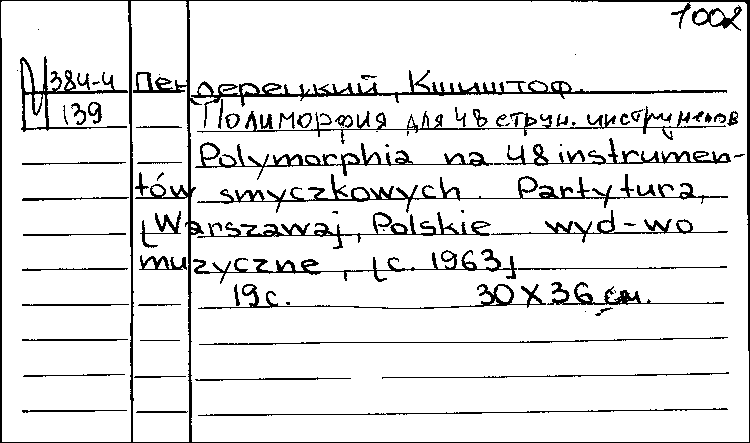 1002
М 384-4 Пендерецкий, Кшиштоф.
139 Полиморфия для 48 струн. инструментов
Polymorphia na 48 instrumen-
tów smyczkowych. Partytura,
[Warszawa], Polskie wyd-wo
muzyczne, [c. 1963]
19 с. 30 X 36 см.